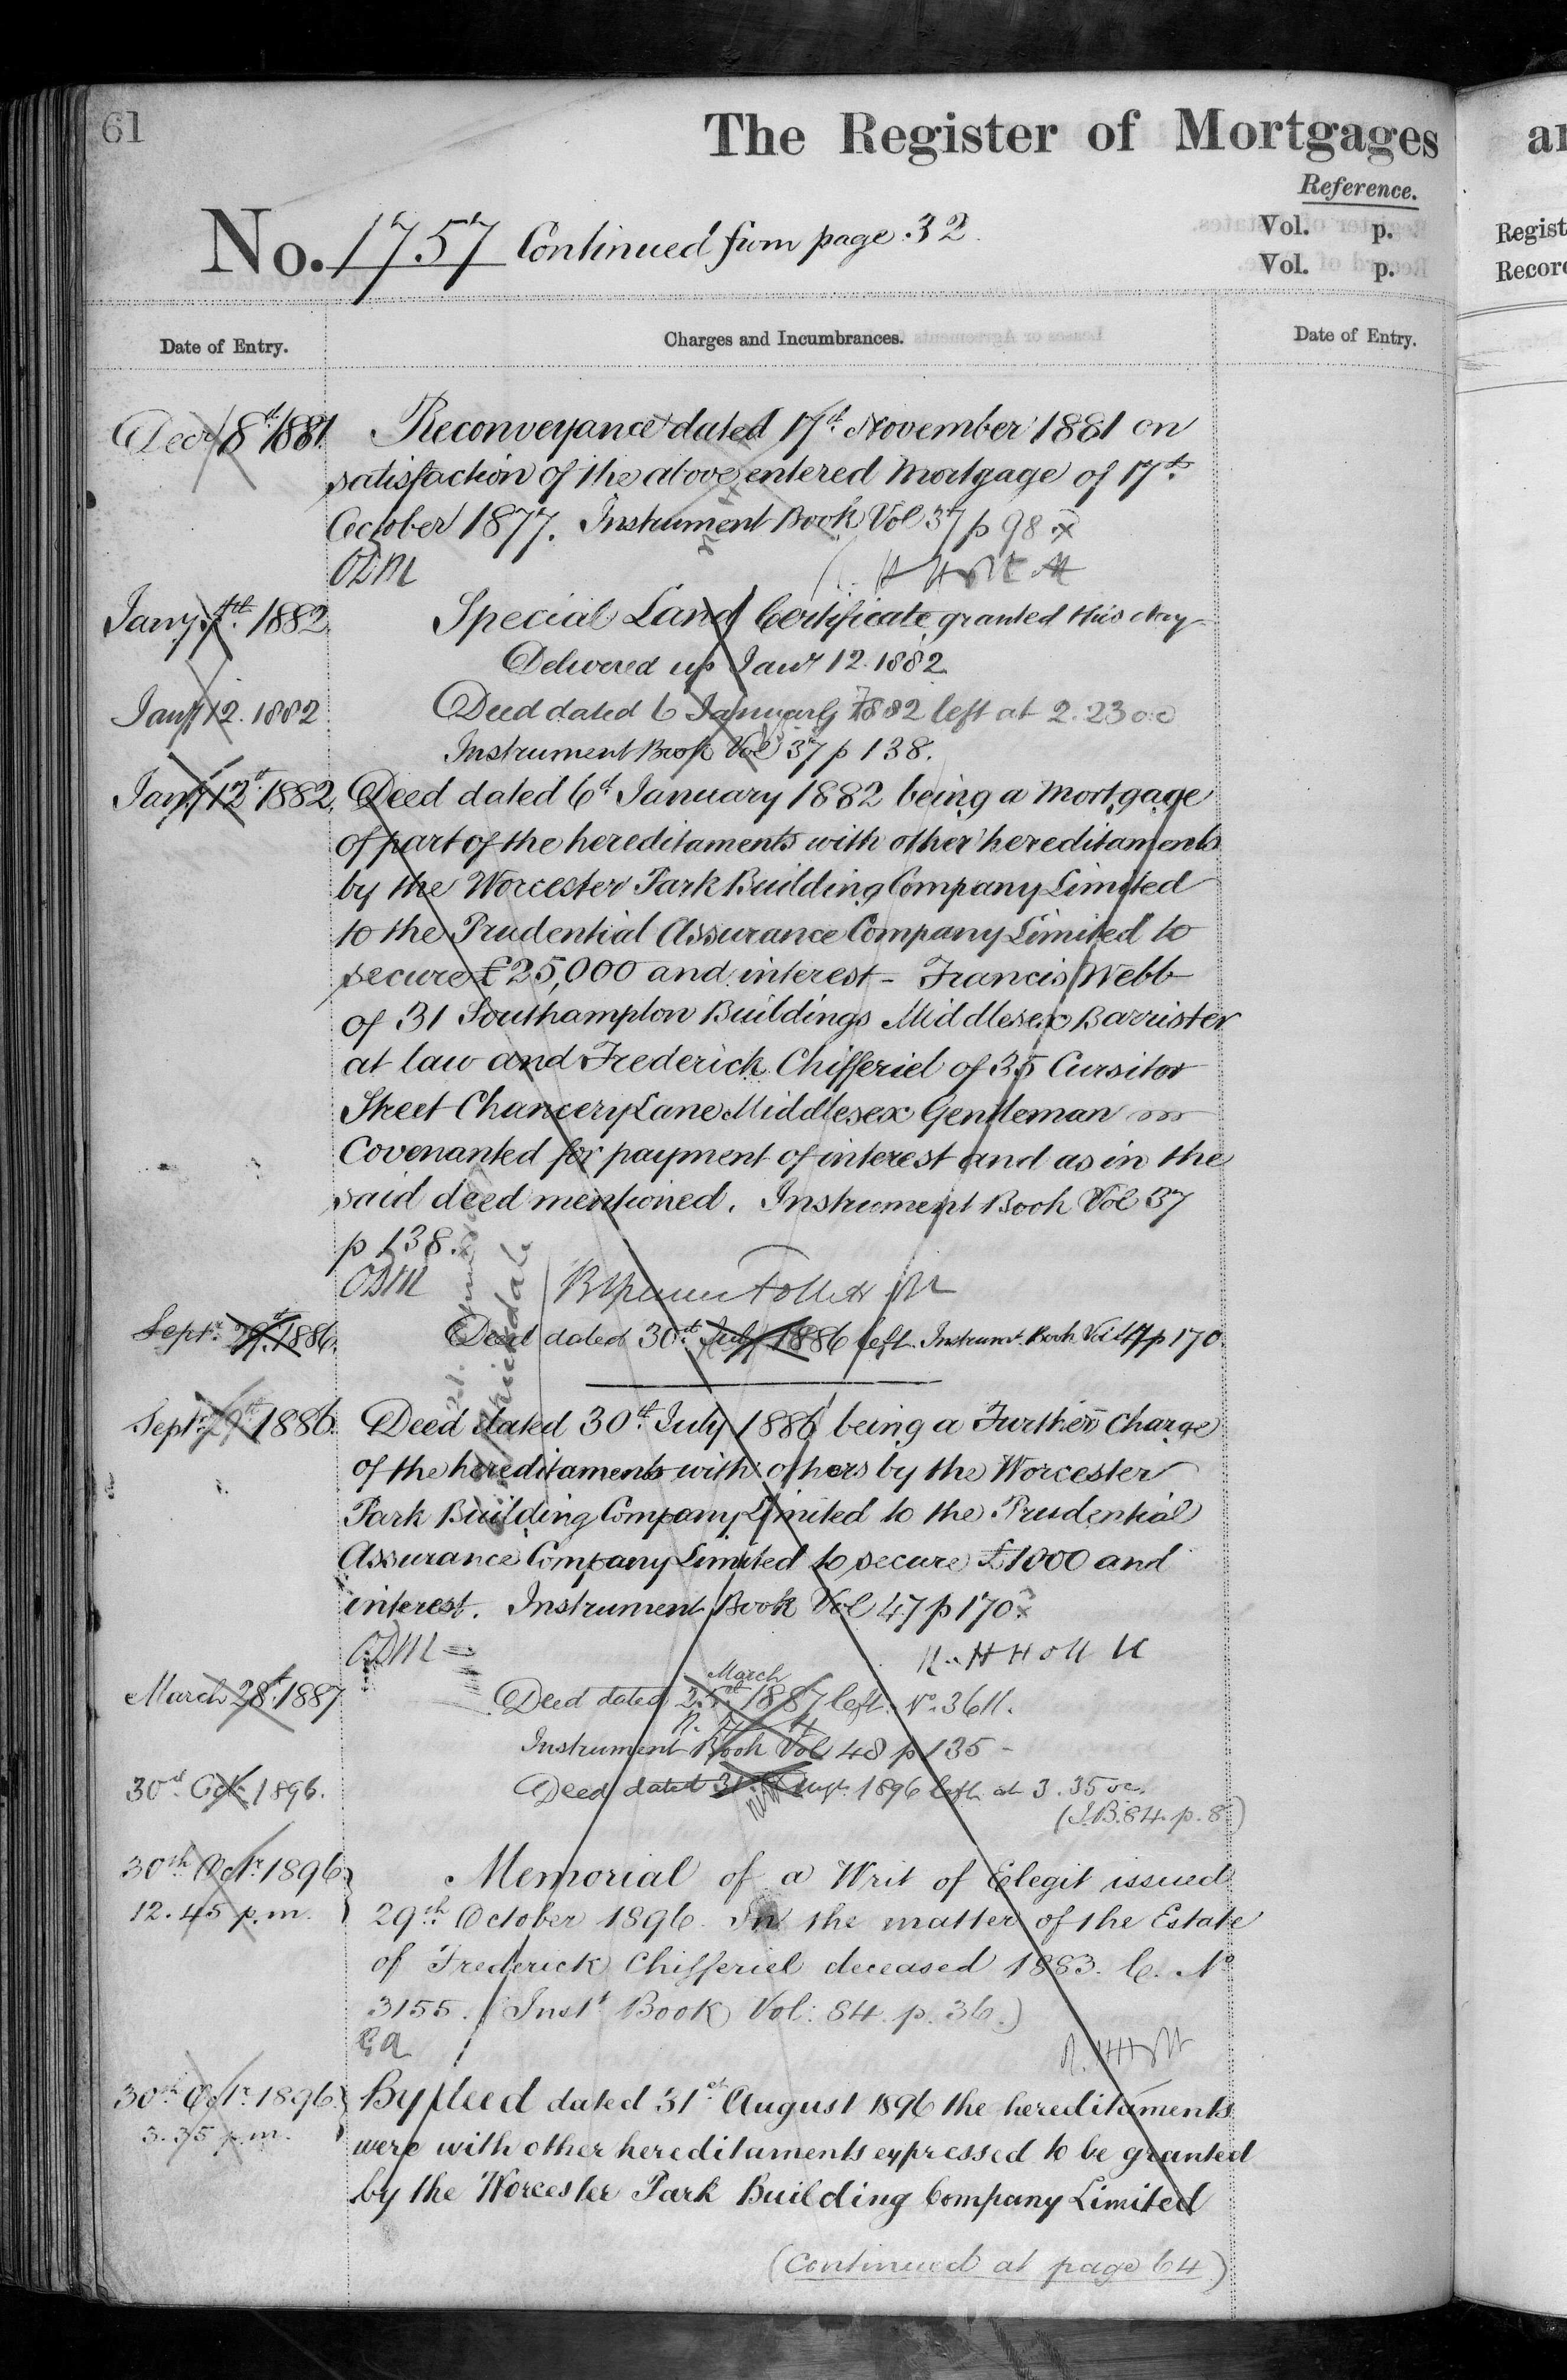 61
The Register of Mortgages
Reference.
No. 1757 Continued from page 32.
Vol. p.
Vol. p.
Date of Entry.
Charges and Incumbrances.
Date of Entry.
Regist
Recor
Decr 8th 1881. Reconveyance dated 17th November 1881 on
satisfaction of the above entered Mortgage of 17th
October 1877. Instrument Book Vol 37 p 98
ODM
Jany 1882. Special Land Certificate granted this day
Delivered up Jany 12. 1882
Jany 12. 1882 Deed dated 6 January 1882 left at 2.23
Instrument Book Vol 37 p 138.
Jany 12th 1882. Deed dated 6th January 1882 being a Mortgage
of part of the hereditaments with other hereditaments
by the Worcester Park Building Company Limited
to the Prudential Assurance Company Limited to
secure £25,000 and interest - Francis Webb
of 31 Southampton Buildings Middlesex Barrister
at law and Frederick Chifferiel of 35 Cursitor
Street Chancery Lane Middlesex Gentleman
Covenanted for payment of interest and as in the
said deed mentioned. Instrument Book Vol 37
p 138.
ODM
Septr 29th 1886. Deed dated 30th July 1886 left. Instrumt Book Vol 47 p 170.
Septr 29th 1886. Deed dated 30th July 1886 being a Further Charge
of the hereditaments with others by the Worcester
Park Building Company Limited to the Prudential
Assurance Company Limited to secure £1000 and
interest. Instrument Book Vol 47 p 170
ODM
March 28th 1887 Deed dated 25th March 1887 left. No. 3611.
Instrument Book Vol 48 p 135 -
30th Oct. 1896. Deed dated 31st Augt. 1896 left at 3.35
(I.B. 84. p. 8)
30th Octr. 1896 Memorial of a Writ of Elegit issued
12.45 p.m. 29th October 1896. In the matter of the Estate
of Frederick Chifferiel deceased 1883. C. No
3155. (Inst Book Vol: 84. p. 36.)
30th Octr. 1896. By Deed dated 31st August 1896 the hereditaments
3.35 p.m. were with other hereditaments expressed to be granted
by the Worcester Park Building Company Limited
(Continued at page 64)